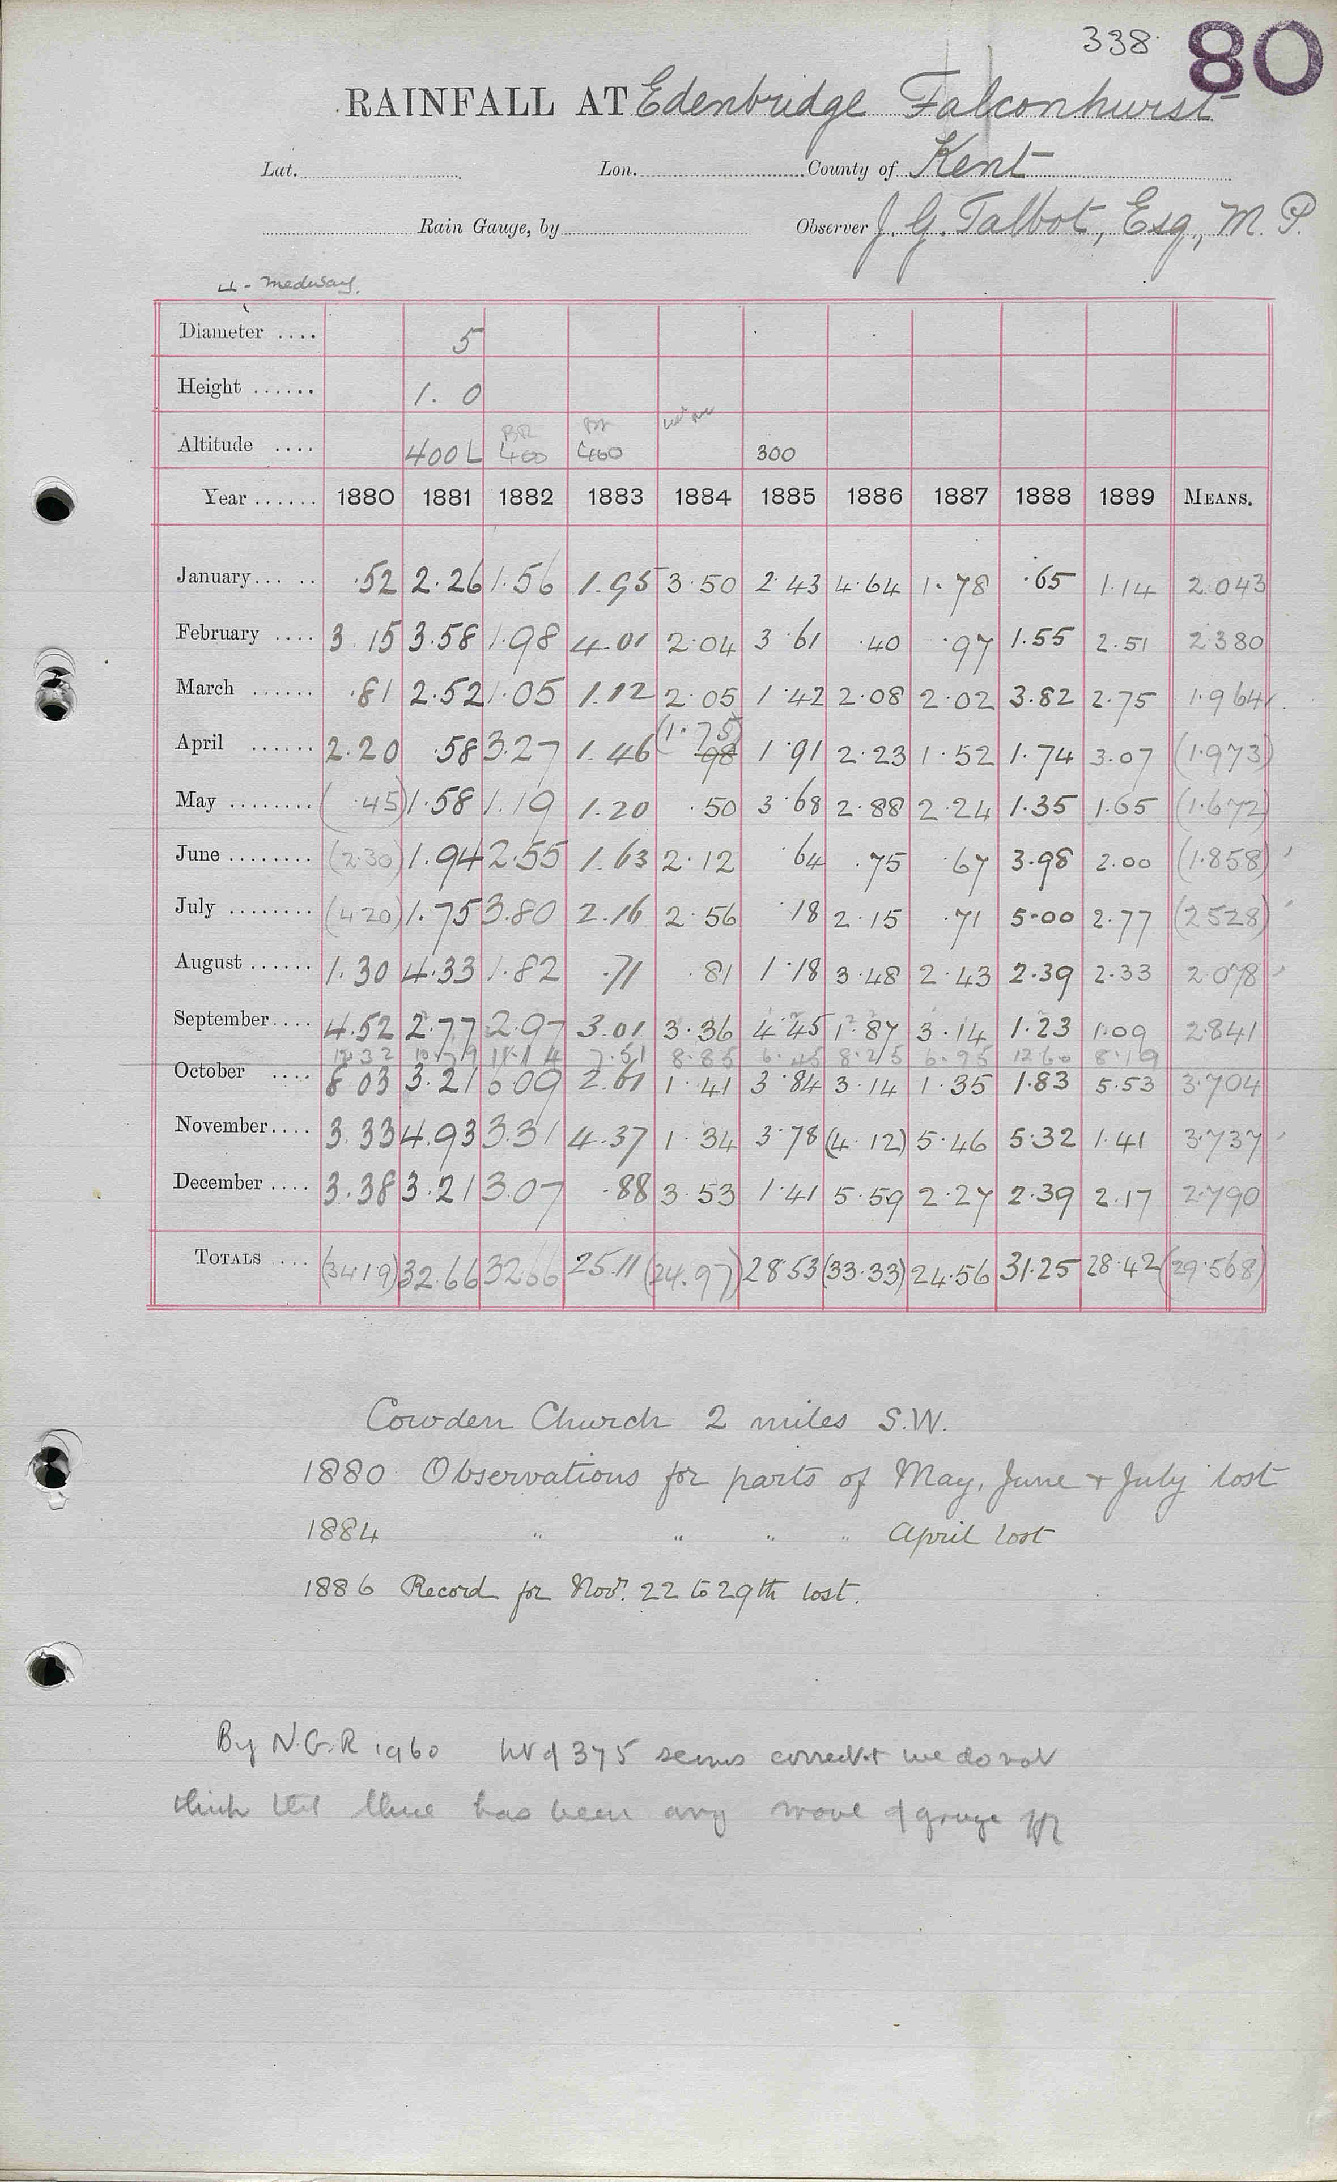 338 80
RAINFALL AT Edenbridge Falconhurst
Lat. Lon. County of Kent
Rain Gauge, by Observer J. G. Talbot, Esq., M. P.
4 - Medway.
Diameter .... 5
Height ...... 1. 0
Altitude .... 400 L 400 400 300
Year ...... 1880 1881 1882 1883 1884 1885 1886 1887 1888 1889 MEANS.
January... .. .52 2.26 1.56 1.95 3.50 2.43 4.64 1.78 .65 1.14 2.043
February .... 3.15 3.58 1.98 4.01 2.04 3.61 .40 .97 1.55 2.51 2.380
March ...... .81 2.52 1.05 1.12 2.05 1.42 2.08 2.02 3.82 2.75 1.964
(1.75)
April ...... 2.20 .58 3.27 1.46 98 1.91 2.23 1.52 1.74 3.07 (1.973)
May ........ (.45) 1.58 1.19 1.20 .50 3.68 2.88 2.24 1.35 1.65 (1.672)
June ........ (2.30) 1.94 2.55 1.63 2.12 .64 .75 .67 3.98 2.00 (1.858)
July ........ (4.20) 1.75 3.80 2.16 2.56 .18 2.15 .71 5.00 2.77 (2.528)
August ...... 1.30 4.33 1.82 .71 .81 1.18 3.48 2.43 2.39 2.33 2.078
September.... 4.52 2.77 2.97 3.01 3.36 4.45 1.87 3.14 1.23 1.09 2.841
12.32 10.79 11.14 7.51 8.85 6.45 8.25 6.95 12.60 8.19
October .... 8.03 3.21 6.09 2.61 1.41 3.84 3.14 1.35 1.83 5.53 3.704
November.... 3.33 4.93 3.31 4.37 1.34 3.78 (4.12) 5.46 5.32 1.41 3.737
December .... 3.38 3.21 3.07 .88 3.53 1.41 5.59 2.27 2.39 2.17 2.790
TOTALS .... (34.19) 32.66 32.66 25.11 (24.97) 28.53 (33.33) 24.56 31.25 28.42 (29.568)
Cowden Church 2 miles S.W.
1880 Observations for parts of May, June + July lost
1884 " " " " April lost
1886 Record for Novr. 22 to 29th lost.
By N.G.R 1960 ht of 375 seems correct + we do not
think that there has been any move of gauge